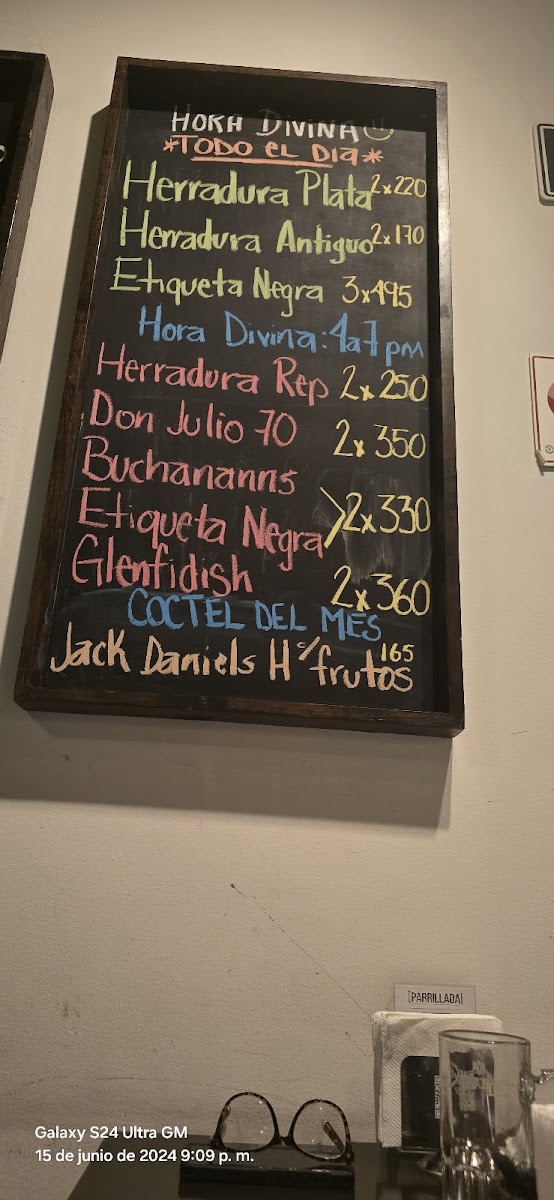 HORA DIVINA
*TODO EL DIA*
Herradura Plata 2x220
Herradura Antiguo 2x170
Etiqueta Negra 3x495
Hora Divina: 4a7 pm
Herradura Rep 2x250
Don Julio 70 2x350
Buchananns
Etiqueta Negra >2x330
Glenfidish 2x360
COCTEL DEL MES
Jack Daniels H c/frutos 165
[PARRILLADA]
Galaxy S24 Ultra GM
15 de junio de 2024 9:09 p. m.